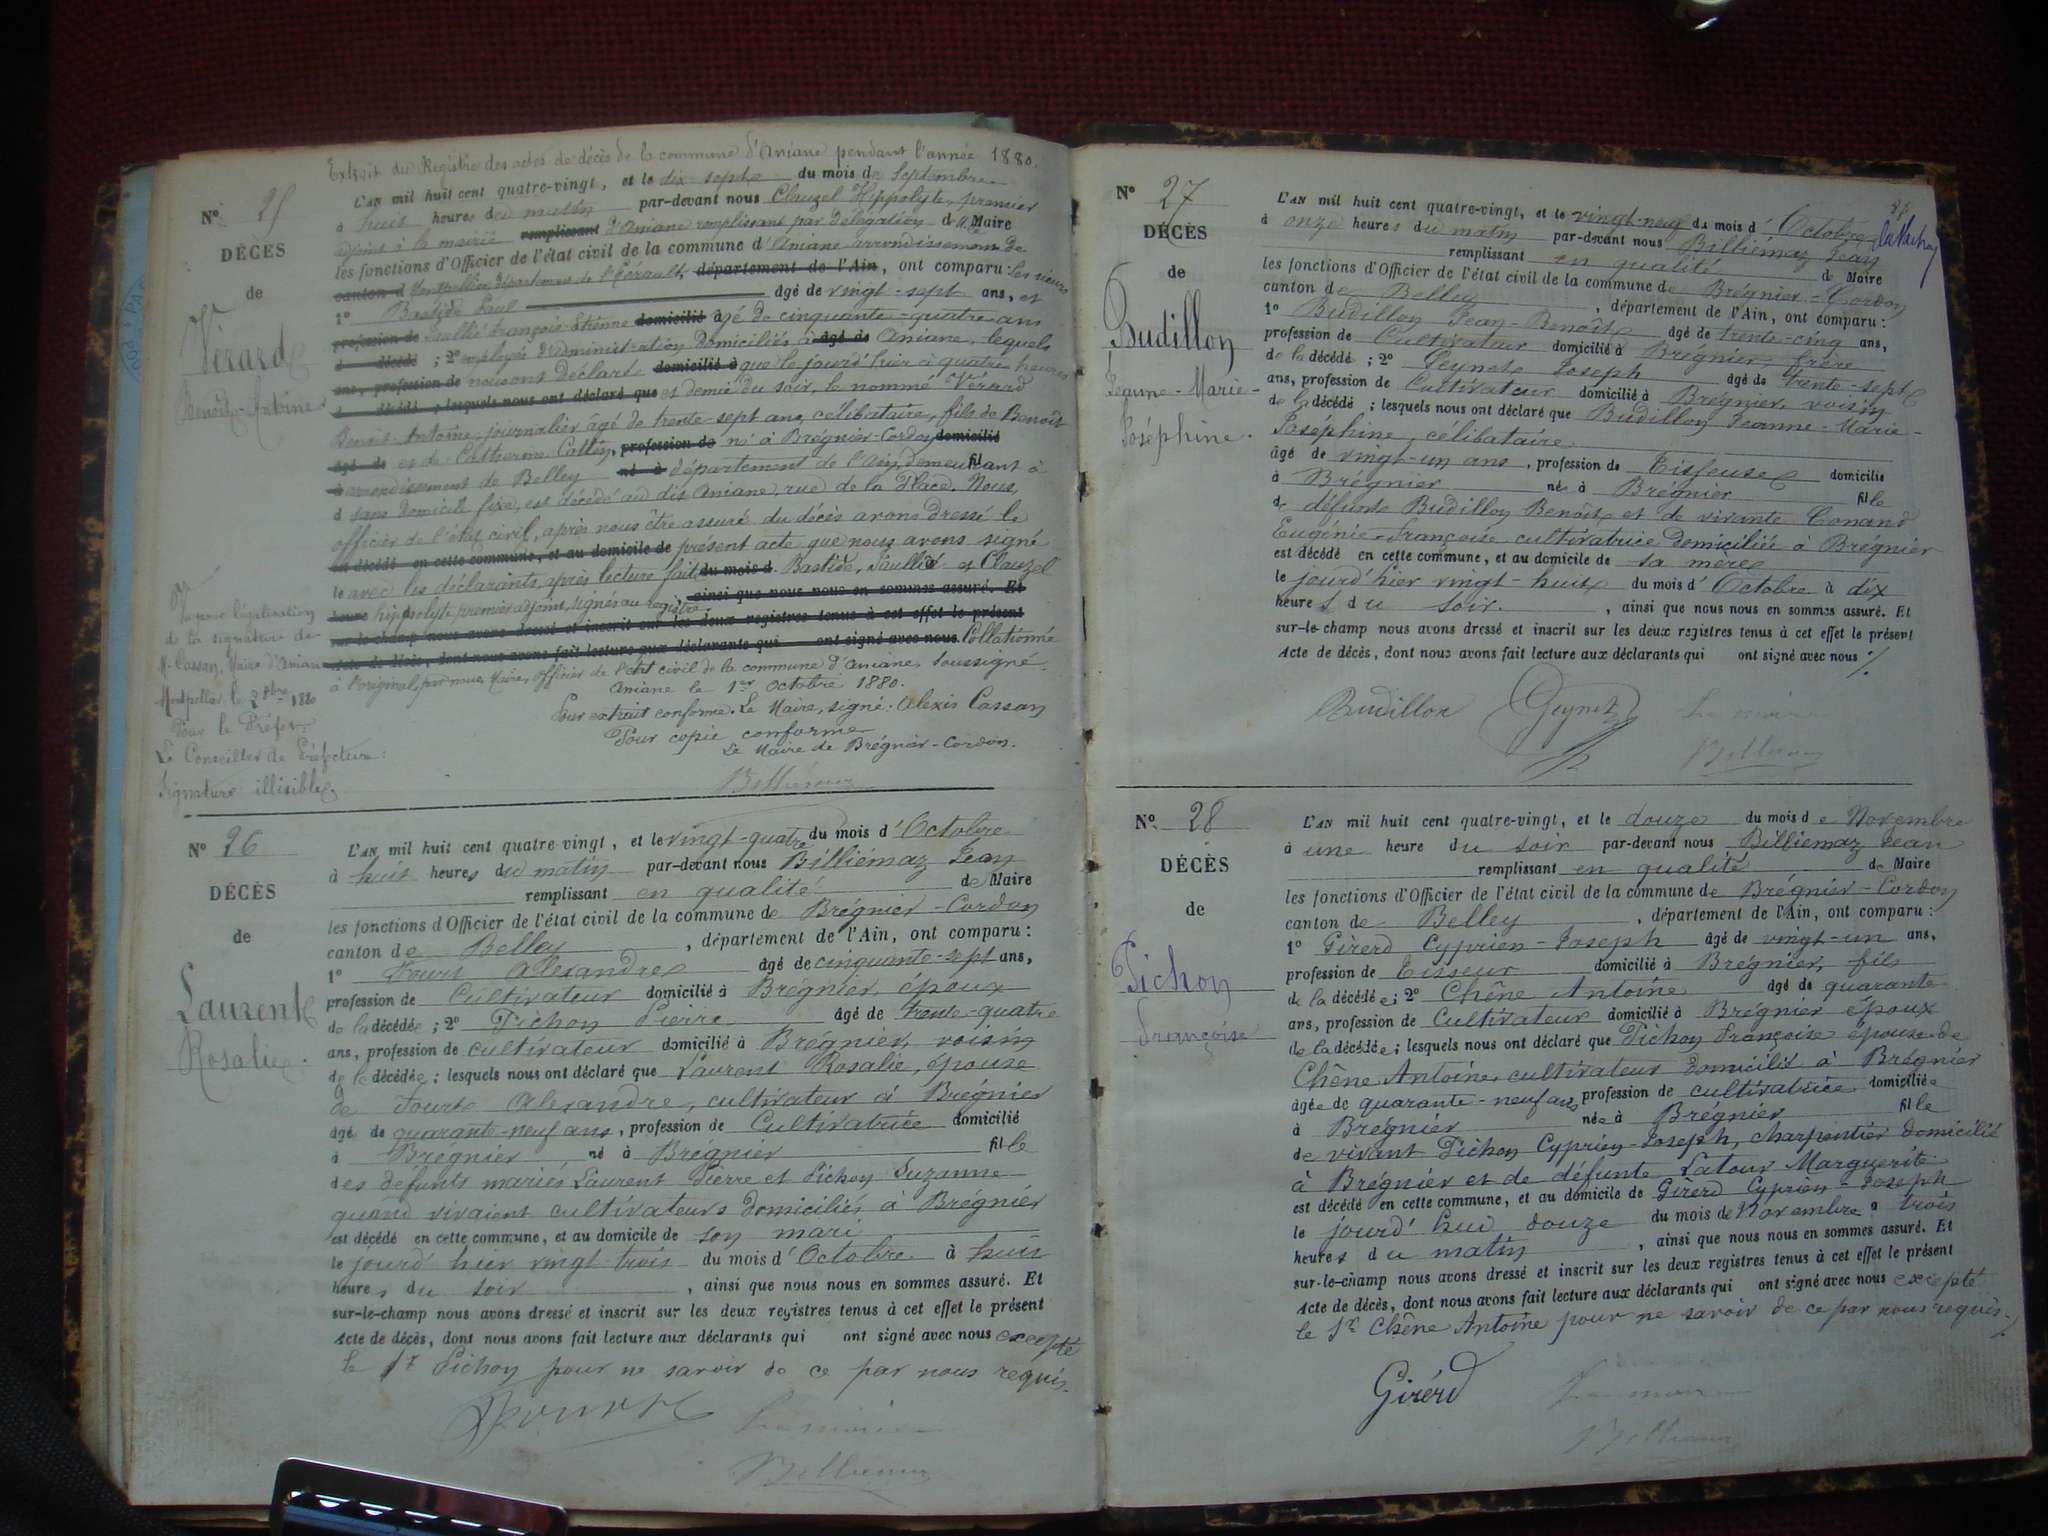 Extrait du Registre des actes de décès de la commune d'Aniane pendant l'année 1880.
N° 25
DÉCÈS
de
Vérard
Benoît-Antoine
L'AN mil huit cent quatre-vingt, et le dix-sept du mois de Septembre
à huit heures du matin par-devant nous Clauzel Hippolyte, premier
adjoint à la mairie remplissant d'Aniane remplissant par délégation du Maire
les fonctions d'Officier de l'état civil de la commune d'Aniane arrondissement de
canton d Montpellier, département de l'Hérault, département de l'Ain, ont comparu: les sieurs
1° Bastide Paul âgé de vingt-sept ans, et
profession de Saullié François-Etienne domicilié âgé de cinquante-quatre ans
d décédé ; 2° employés d'administration domiciliés à âgé de Aniane, lesquels
ans, profession de nous ont déclaré domicilié à que le jourd'hier à quatre heures
d décédé ; lesquels nous ont déclaré que et demie du soir, le nommé Vérard
Benoit-Antoine journalier âgé de trente-sept ans, célibataire, fils de Benoît
âgé de et de Catherine Cattin, profession de né à Brégnier-Cordon domicilié
à arrondissement de Belley né à département de l'Ain, demeurant à fil
d sans domicile fixe, est décédé au dit Aniane, rue de la Place. Nous,
officier de l'état civil, après nous être assuré du décès avons dressé le
est décédé en cette commune, et au domicile de présent acte que nous avons signé
le avec les déclarants, après lecture faite du mois d Bastide, Saullié et Clauzel
heure hippolyte premier adjoint, signés au registre. , ainsi que nous nous en sommes assuré. Et
sur-le-champ nous avons dressé et inscrit sur les deux registres tenus à cet effet le présent
acte de décès, dont nous avons fait lecture aux déclarants qui ont signé avec nous Collationné
à l'original, par nous, Maire, officier de l'état civil de la commune d'Aniane, soussigné.
Aniane le 1er Octobre 1880.
Pour extrait conforme. Le Maire, signé: Alexis Cassan
Pour copie conforme
Le Maire de Brégnier-Cordon.
Billiémaz
légalisation
de la signature de
M. Cassan, Maire d'Aniane
Montpellier le 2 8bre 1880
Pour le Préfet
Le Conseiller de Préfecture:
Signature illisible.
N° 26
DÉCÈS
de
Laurent
Rosalie.
L'AN mil huit cent quatre-vingt, et le vingt-quatre du mois d'Octobre
à huit heures du matin par-devant nous Billiémaz Jean
remplissant en qualité de Maire
les fonctions d'Officier de l'état civil de la commune de Brégnier-Cordon
canton de Belley , département de l'Ain, ont comparu:
1° Fourt Alexandre âgé de cinquante-sept ans,
profession de Cultivateur domicilié à Brégnier, époux
de la décédée ; 2° Pichon Pierre âgé de trente-quatre
ans, profession de cultivateur domicilié à Brégnier, voisin
de la décédée : lesquels nous ont déclaré que Laurent Rosalie, épouse
de Fourt Alexandre, cultivateur à Brégnier
âgé de quarante-neuf ans, profession de Cultivatrice domicilié
à Brégnier né à Brégnier fille
des défunts mariés Laurent Pierre et Pichon Suzanne
quand vivaient cultivateurs domiciliés à Brégnier
est décédé en cette commune, et au domicile de son mari
le jourd'hier vingt-trois du mois d'Octobre à huit
heures du soir , ainsi que nous nous en sommes assuré. Et
sur-le-champ nous avons dressé et inscrit sur les deux registres tenus à cet effet le présent
acte de décès, dont nous avons fait lecture aux déclarants qui ont signé avec nous excepté
le Sr Pichon pour ne savoir de ce par nous requis.
Fourt
Le maire
Billiémaz
N° 27
DÉCÈS
de
Budillon
Jeanne-Marie-
Joséphine.
L'AN mil huit cent quatre-vingt, et le vingt-neuf du mois d'Octobre
à onze heures du matin par-devant nous Billiémaz Jean
remplissant en qualité de Maire
les fonctions d'Officier de l'état civil de la commune de Brégnier-Cordon
canton de Belley , département de l'Ain, ont comparu:
1° Budillon Jean-Benoît âgé de trente-cinq ans,
profession de Cultivateur domicilié à Brégnier, frère
de la décédé ; 2° Geynet Joseph âgé de trente-sept
ans, profession de Cultivateur domicilié à Brégnier, voisin
de la décédé ; lesquels nous ont déclaré que Budillon Jeanne-Marie-
Joséphine, célibataire
âgé de vingt-un ans, profession de Tisseuse domicilié
à Brégnier née à Brégnier fille
de défunt Budillon Benoît et de vivante Conand
Eugénie-Françoise cultivatrice domiciliée à Brégnier
est décédé en cette commune, et au domicile de sa mère
le jourd'hier vingt-huit du mois d'Octobre à dix
heures du soir. , ainsi que nous nous en sommes assuré. Et
sur-le-champ nous avons dressé et inscrit sur les deux registres tenus à cet effet le présent
acte de décès, dont nous avons fait lecture aux déclarants qui ont signé avec nous
Budillon Geynet Le maire
Billiémaz
N° 28
DÉCÈS
de
Pichon
Françoise
L'AN mil huit cent quatre-vingt, et le douze du mois de Novembre
à une heure du soir par-devant nous Billiemaz Jean
remplissant en qualité de Maire
les fonctions d'Officier de l'état civil de la commune de Brégnier-Cordon
canton de Belley , département de l'Ain, ont comparu:
1° Girerd Cyprien-Joseph âgé de vingt-un ans,
profession de Tisseur domicilié à Brégnier, fils
de la décédée; 2° Chêne Antoine âgé de quarante
ans, profession de Cultivateur domicilié à Brégnier époux
de la décédée; lesquels nous ont déclaré que Pichon Françoise épouse de
Chêne Antoine, cultivateur domicilié à Brégnier
âgée de quarante-neuf ans profession de cultivatrice domiciliée
à Brégnier née à Brégnier fille
de vivant Pichon Cyprien-Joseph, charpentier domicilié
à Brégnier et de défunte Latour Marguerite
est décédé en cette commune, et au domicile de Girerd Cyprien-Joseph
le jourd'hui douze du mois de Novembre à trois
heures du matin , ainsi que nous nous en sommes assuré. Et
sur-le-champ nous avons dressé et inscrit sur les deux registres tenus à cet effet le présent
acte de décès, dont nous avons fait lecture aux déclarants qui ont signé avec nous excepté
le Sr Chêne Antoine pour ne savoir de ce par nous requis.
Girérd Le maire
Billiémaz